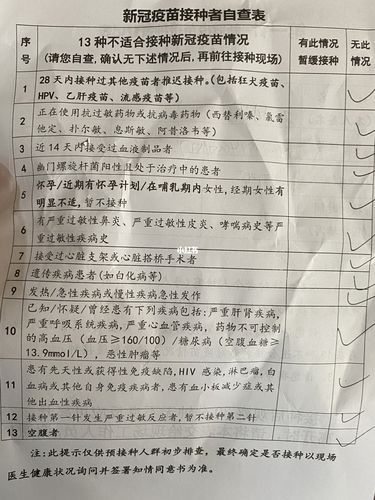 新冠疫苗接种者自查表
序号
13 种不适合接种新冠疫苗情况
(请您自查,确认无下述情况后,再前往接种现场)
有此情况
暂缓接种
无此情况
1
28 天内接种过其他疫苗者推迟接种。(包括狂犬疫苗、
HPV、乙肝疫苗、流感疫苗等)
2
正在使用抗过敏药物或抗病毒药物(西替利嗪、氯雷
他定、扑尔敏、息斯敏、阿昔洛韦等)
3
近 14 天内接受过血液制品者
4
幽门螺旋杆菌阳性且处于治疗中的患者
5
怀孕/近期有怀孕计划/在哺乳期内女性,经期女性有
明显不适,暂不接种
6
有严重过敏性鼻炎、严重过敏性皮炎、哮喘病史等严
重过敏性疾病史
7
接受过心脏支架或心脏搭桥手术者
8
遗传疾病患者(如白化病等)
9
发热/急性疾病或慢性疾病急性发作
10
已知/怀疑/曾经患有下列疾病包括:严重肝肾疾病,
严重呼吸系统疾病,严重心血管疾病,药物不可控制
的高血压(血压≥160/100)/糖尿病(空腹血糖≥
13.9mmol/L),恶性肿瘤等
11
患有先天性或获得性免疫缺陷,HIV 感染,淋巴瘤,白
血病或其他自身免疫疾病者,患有血小板减少症或其
他出血性疾病
12
接种第一针发生严重过敏反应者,暂不接种第二针
13
空腹者
注:此提示仅供预接种人群初步排查,最终确定是否接种以现场
医生健康状况询问并签署知情同意书为准。
小红书